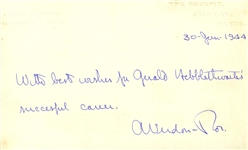 30-Jan-1944
With best wishes for Gerald Hebblethwaite's
succesful career.